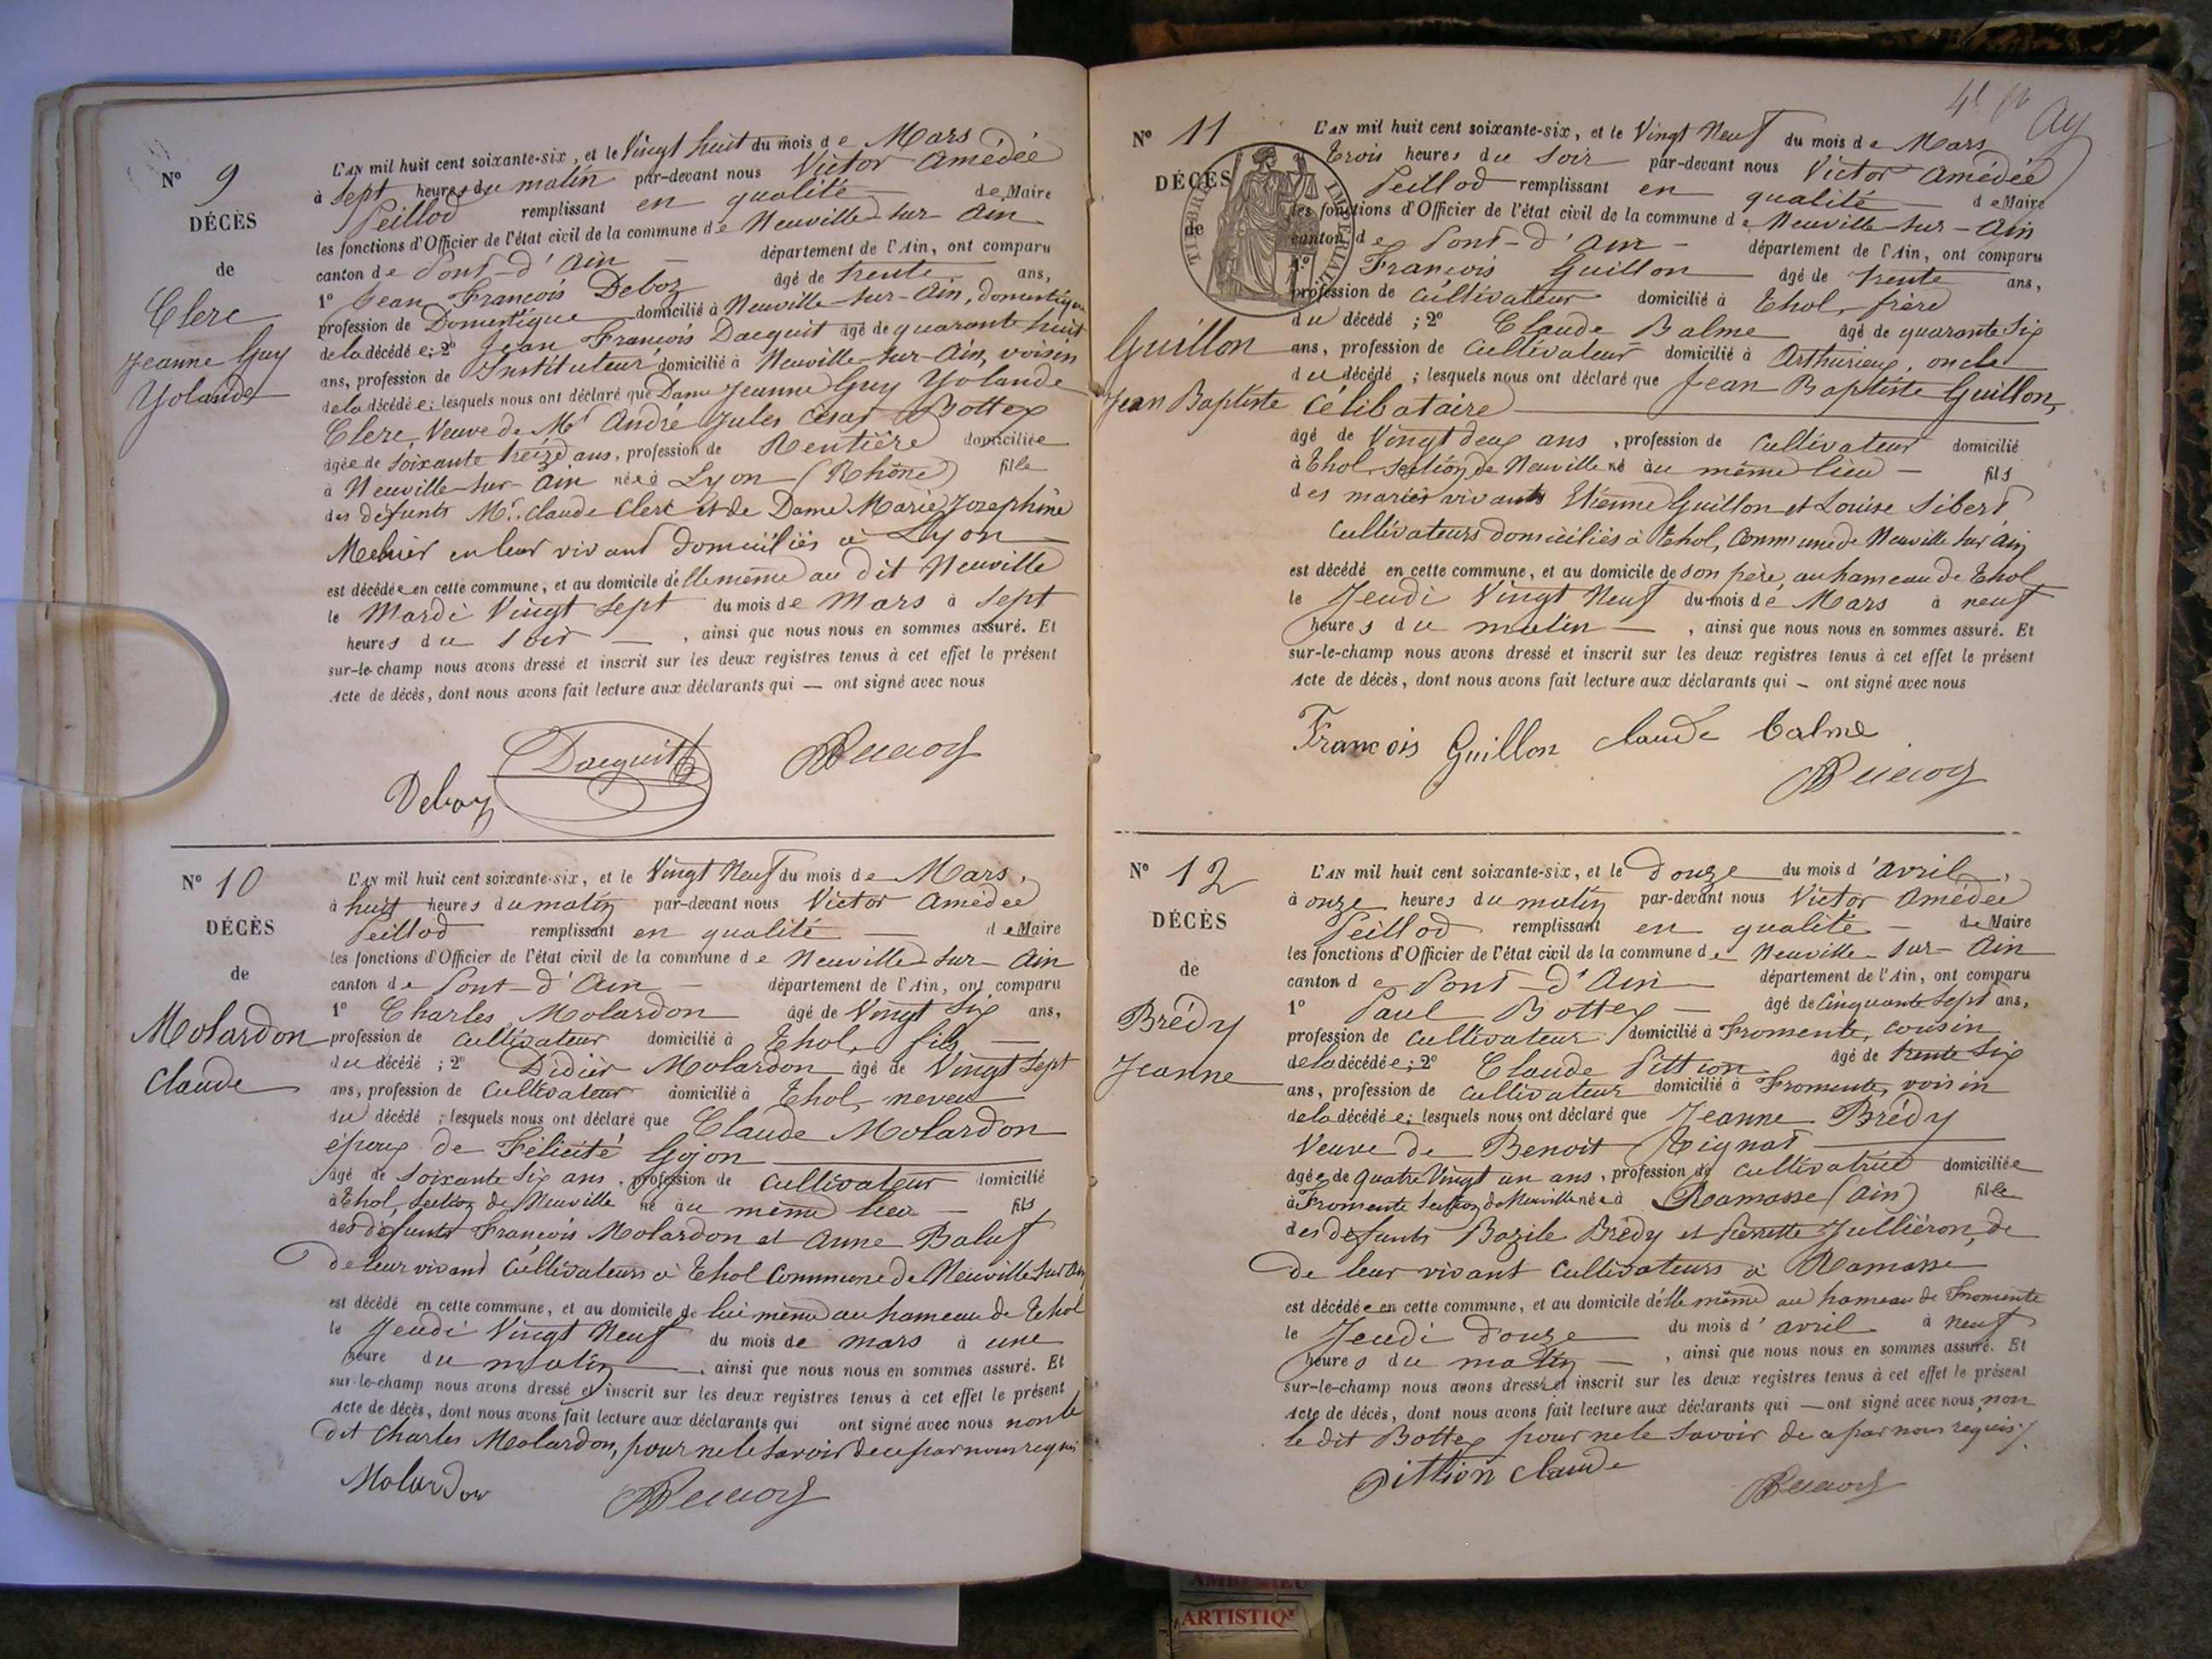 N° 9
DÉCÈS
de
Clerc
Jeanne Guy
Yolande
L'AN mil huit cent soixante-six, et le Vingt huit du mois de Mars
à Sept heures du matin par-devant nous Victor Amédée
Peillod remplissant en qualité de Maire
les fonctions d'Officier de l'état civil de la commune de Neuville sur Ain
canton de Pont-d'Ain département de l'Ain, ont comparu
1° Jean François Deboz âgé de trente ans,
profession de Domestique domicilié à Neuville-sur-Ain, domestique
de la décédée; 2° Jean François Dacquit âgé de quarante huit
ans, profession de Instituteur domicilié à Neuville-sur-Ain, voisin
de la décédée; lesquels nous ont déclaré que Dame Jeanne Guy Yolande
Clerc, Veuve de Mr André Jules César Bottex
âgée de soixante treize ans, profession de Rentière domiciliée
à Neuville-sur-Ain née à Lyon (Rhône) fille
des défunts Mr. Claude Clerc et de Dame Marie Josephine
en leur vivant domiciliés à Lyon
est décédée en cette commune, et au domicile d'elle même au dit Neuville
le Mardi Vingt Sept du mois de Mars à Sept
heures du soir , ainsi que nous nous en sommes assuré. Et
sur-le-champ nous avons dressé et inscrit sur les deux registres tenus à cet effet le présent
Acte de décès, dont nous avons fait lecture aux déclarants qui — ont signé avec nous
Dacquit
Deboz
N° 10
DÉCÈS
de
Molardon
Claude
L'AN mil huit cent soixante-six, et le Vingt Neuf du mois de Mars,
à huit heures du matin par-devant nous Victor Amédée
Peillod remplissant en qualité — de Maire
les fonctions d'Officier de l'état civil de la commune de Neuville sur Ain
canton de Pont-d'Ain — département de l'Ain, ont comparu
1° Charles Molardon âgé de Vingt Six ans,
profession de Cultivateur domicilié à Thol, fils
du décédé ; 2° Didier Molardon âgé de Vingt Sept
ans, profession de Cultivateur domicilié à Thol, neveu
du décédé ; lesquels nous ont déclaré que Claude Molardon
époux de Félicité Gojon
âgé de soixante Six ans, profession de Cultivateur domicilié
à Thol, Section de Neuville né au même lieu — fils
des défunts François Molardon et Anne Baluf
De leur vivant Cultivateurs à Thol Commune de Neuville sur Ain
est décédé en cette commune, et au domicile de lui même au hameau de Thol
le Jeudi Vingt Neuf du mois de mars à une
heure du matin , ainsi que nous nous en sommes assuré. Et
sur-le-champ nous avons dressé et inscrit sur les deux registres tenus à cet effet le présent
Acte de décès, dont nous avons fait lecture aux déclarants qui ont signé avec nous non le
dit Charles Molardon, pour ne le savoir de ce par nous requis
Molardon
N° 11
DÉCÈS
de
Guillon
Jean Baptiste
TIMBRE IMPERIAL
L'AN mil huit cent soixante-six, et le Vingt Neuf du mois de Mars
Trois heures du Soir par-devant nous Victor Amédée
Peillod remplissant en qualité — de Maire
les fonctions d'Officier de l'état civil de la commune de Neuville-sur-Ain
canton de Pont-d'Ain — département de l'Ain, ont comparu
1° François Guillon âgé de trente ans,
profession de Cultivateur domicilié à Thol, frère
du décédé ; 2° Claude Balme âgé de quarante Six
ans, profession de Cultivateur domicilié à Arthurieux, oncle
du décédé ; lesquels nous ont déclaré que Jean Baptiste Guillon,
Célibataire
âgé de Vingt deux ans, profession de Cultivateur domicilié
à Thol, Section de Neuville né au même lieu — fils
des mariés vivants Etienne Guillon et Louise Sibert
Cultivateurs domiciliés à Thol, Commune de Neuville sur Ain
est décédé en cette commune, et au domicile de son père, au hameau de Thol
le Jeudi Vingt Neuf du mois de Mars à neuf
heures du matin — , ainsi que nous nous en sommes assuré. Et
sur-le-champ nous avons dressé et inscrit sur les deux registres tenus à cet effet le présent
Acte de décès, dont nous avons fait lecture aux déclarants qui — ont signé avec nous
François Guillon Claude Balme
N° 12
DÉCÈS
de
Brédy
Jeanne
L'AN mil huit cent soixante-six, et le Douze du mois d'avril,
à onze heures du matin par-devant nous Victor Amédée
Peillod remplissant en qualité — de Maire
les fonctions d'Officier de l'état civil de la commune de Neuville-sur-Ain
canton de Pont-d'Ain département de l'Ain, ont comparu
1° Paul Bottex — âgé de Cinquante Sept ans,
profession de Cultivateur domicilié à Fromente, cousin
de la décédée; 2° Claude Pittion âgé de trente Six
ans, profession de Cultivateur domicilié à Fromente, voisin
de la décédée; lesquels nous ont déclaré que Jeanne Brédy
Veuve de Benoit Tignat
âgée de quatre Vingt un ans, profession de Cultivatrice domiciliée
à Fromente Section de Neuville née à Ramasse (Ain) fille
des défunts Bazile Brédy et Pierrette Julliéron, de
De leur vivant Cultivateurs à Ramasse
est décédée en cette commune, et au domicile d'elle même au hameau de Fromente
le Jeudi Douze du mois d'avril à neuf
heures du matin — , ainsi que nous nous en sommes assuré. Et
sur-le-champ nous avons dressé et inscrit sur les deux registres tenus à cet effet le présent
Acte de décès, dont nous avons fait lecture aux déclarants qui — ont signé avec nous, non
le dit Bottex pour ne le savoir de ce par nous requis
Pittion Claude
AMBERIEU
ARTISTIQ